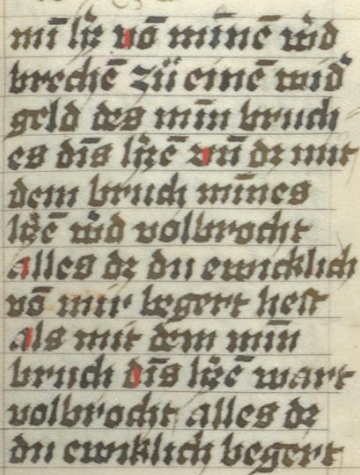 mī h̄z vō mīnē w̄d
brechē zü einē wid
geld des mīn bruch
es dīs h̄zē vn̄ dz mit
dem bruch mīnes
h̄zē w̄d volbrocht
alles dz du ewicklich
vō mir begert hest
als mit dem mīn
bruch dīs h̄zē wart
volbrocht alles dz
du ewiklich begert